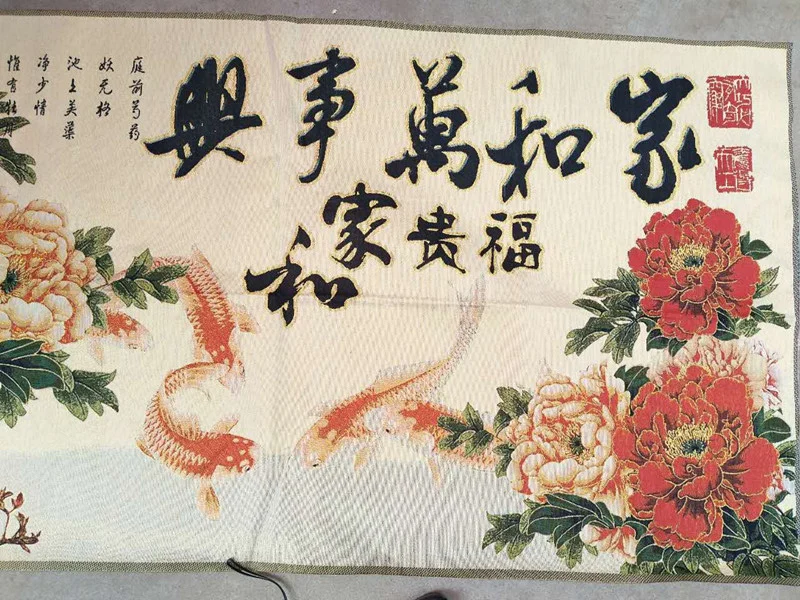 家和萬事興
福贵家和
庭前芍药
妖无格
池上芙蕖
净少情
惟有牡丹